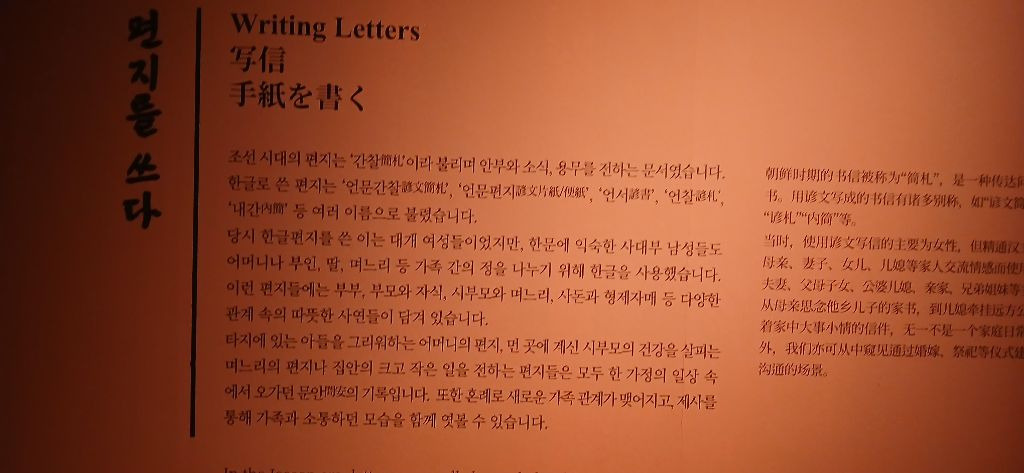 편지를 쓰다
Writing Letters
写信
手紙を書く
조선 시대의 편지는 '간찰簡札'이라 불리며 안부와 소식, 용무를 전하는 문서였습니다.
한글로 쓴 편지는 '언문간찰諺文簡札', '언문편지諺文片紙/便紙', '언서諺書', '언찰諺札',
'내간內簡' 등 여러 이름으로 불렸습니다.
당시 한글편지를 쓴 이는 대개 여성들이었지만, 한문에 익숙한 사대부 남성들도
어머니나 부인, 딸, 며느리 등 가족 간의 정을 나누기 위해 한글을 사용했습니다.
이런 편지들에는 부부, 부모와 자식, 시부모와 며느리, 사돈과 형제자매 등 다양한
관계 속의 따뜻한 사연들이 담겨 있습니다.
타지에 있는 아들을 그리워하는 어머니의 편지, 먼 곳에 계신 시부모의 건강을 살피는
며느리의 편지나 집안의 크고 작은 일을 전하는 편지들은 모두 한 가정의 일상 속
에서 오가던 문안問安의 기록입니다. 또한 혼례로 새로운 가족 관계가 맺어지고, 제사를
통해 가족과 소통하던 모습을 함께 엿볼 수 있습니다.
朝鲜时期的书信被称为“简札”，是一种传达
书。用谚文写成的书信有诸多别称，如“谚文
“谚札”“内简”等。
当时，使用谚文写信的主要为女性，但精通汉
母亲、妻子、女儿、儿媳等家人交流情感而使
夫妻、父母子女、公婆儿媳、亲家、兄弟姐妹等
从母亲思念他乡儿子的家书，到儿媳牵挂远方
着家中大事小情的信件，无一不是一个家庭日
外，我们亦可从中窥见通过婚嫁、祭祀等仪式
沟通的场景。
In the Joseon